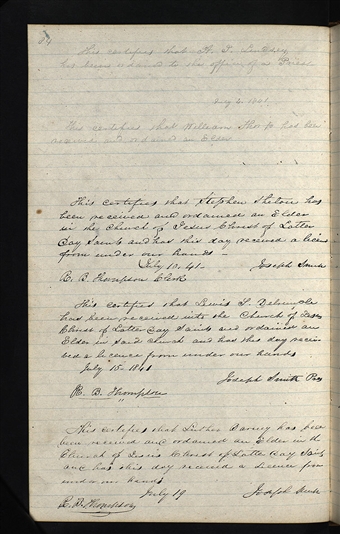 This certifies that
has been ordained to the office of a Priest
1841
This certifies that William has been
received and ordained an Elder
This certifies that Stephen Shelton has
been received and ordained an Elder
in the Church of Jesus Christ of Latter
Day Saints and has this day received a licence
from under our hands –
July 10. 41 – Joseph Smith
R. B. Thompson Clerk
This certifies that Lewis
has been received into the Church of Jesus
Christ of Latter Day Saints and ordained an
Elder in said church and has this day recei-
ved a licence from under our hands
July 15 – 1841
Joseph Smith Pres
R. B. Thompson
This certifies that has been
received and ordained an Elder in the
Church of Jesus Christ of Latter Day Saints
and has this day received a licence from
under our hands
July 19 Joseph Smith
R. B. Thompson